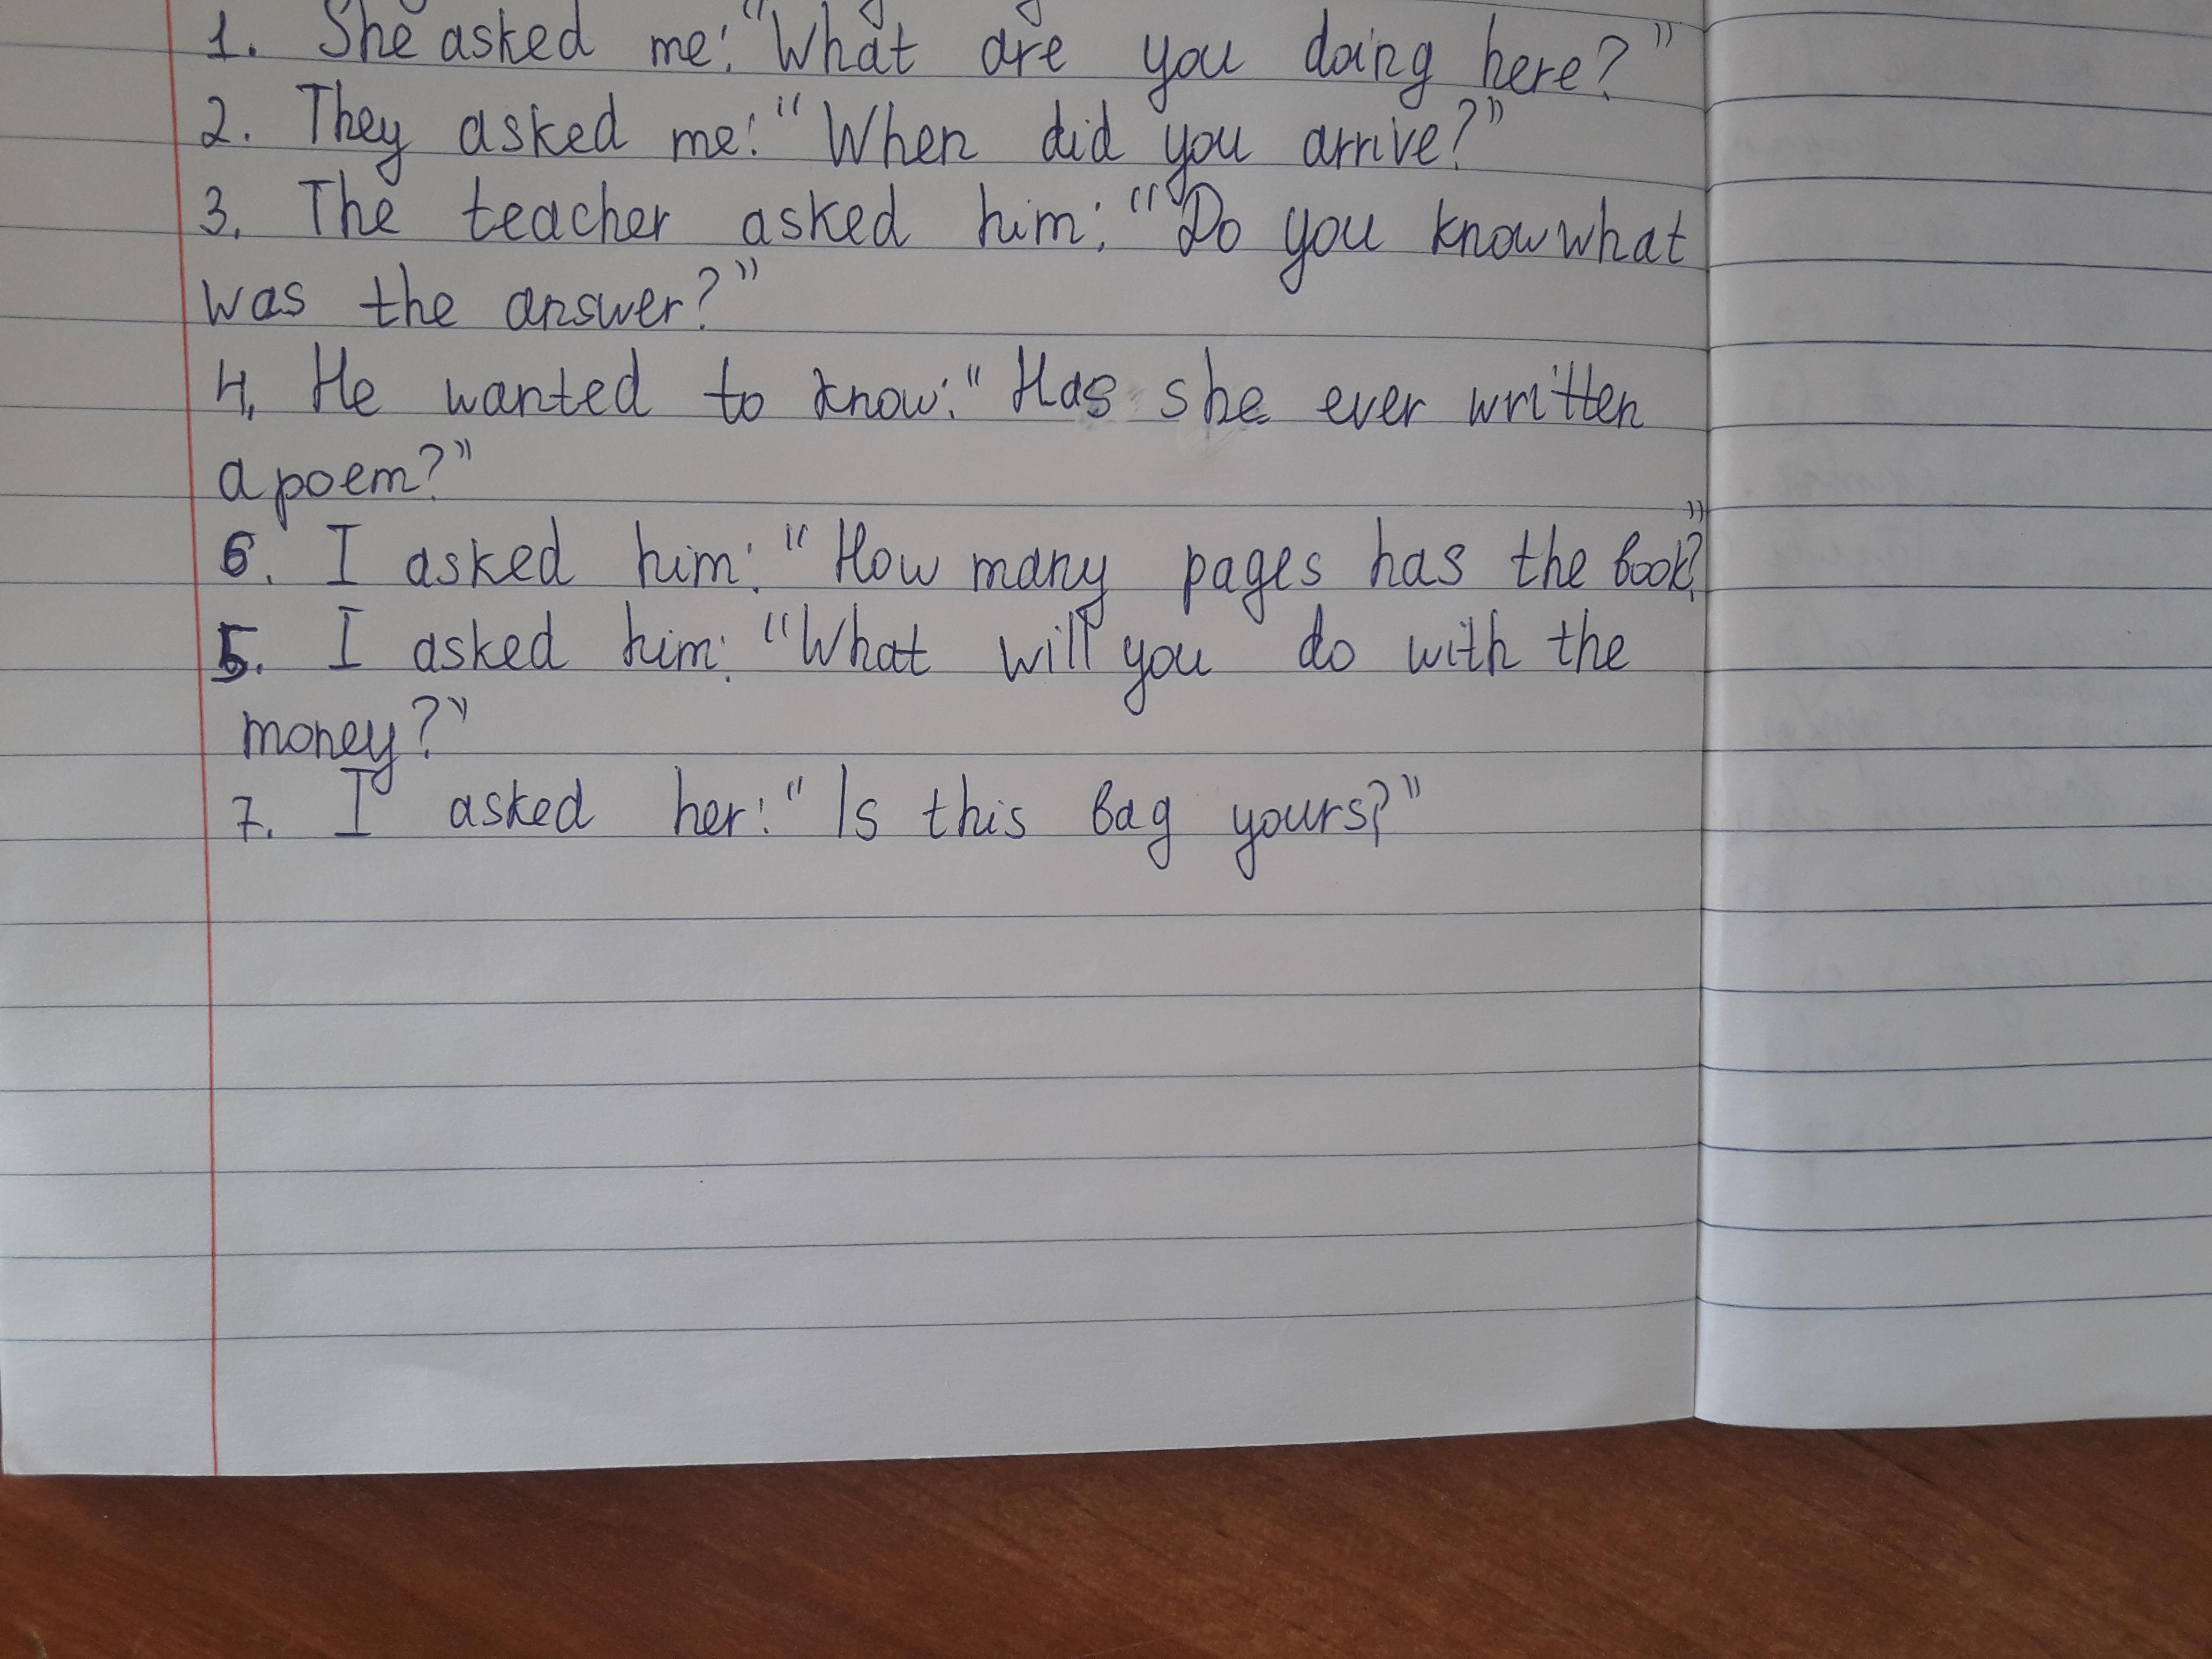 1. She asked me: "What are you doing here?"
2. They asked me: "When did you arrive?"
3. The teacher asked him: "Do you know what
was the answer?"
4. He wanted to know: "Has she ever written
a poem?"
6. I asked him: "How many pages has the book?"
5. I asked him: "What will you do with the
money?"
7. I asked her: "Is this bag yours?"